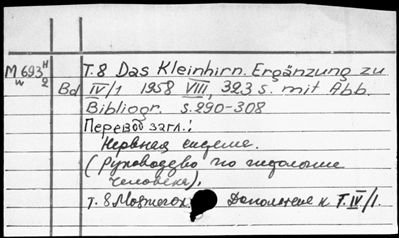 M 693 H/2
w
T. 8 Das Kleinhirn. Ergänzung zu
Bd IV/1 1958 VIII, 323 s. mit Abb.
Bibliogr. s. 290-308
Перевод загл.:
Нервная система.
(Руководство по гистологии
человека).
т. 8 Мозжечок Дополнение к Т. IV/1.